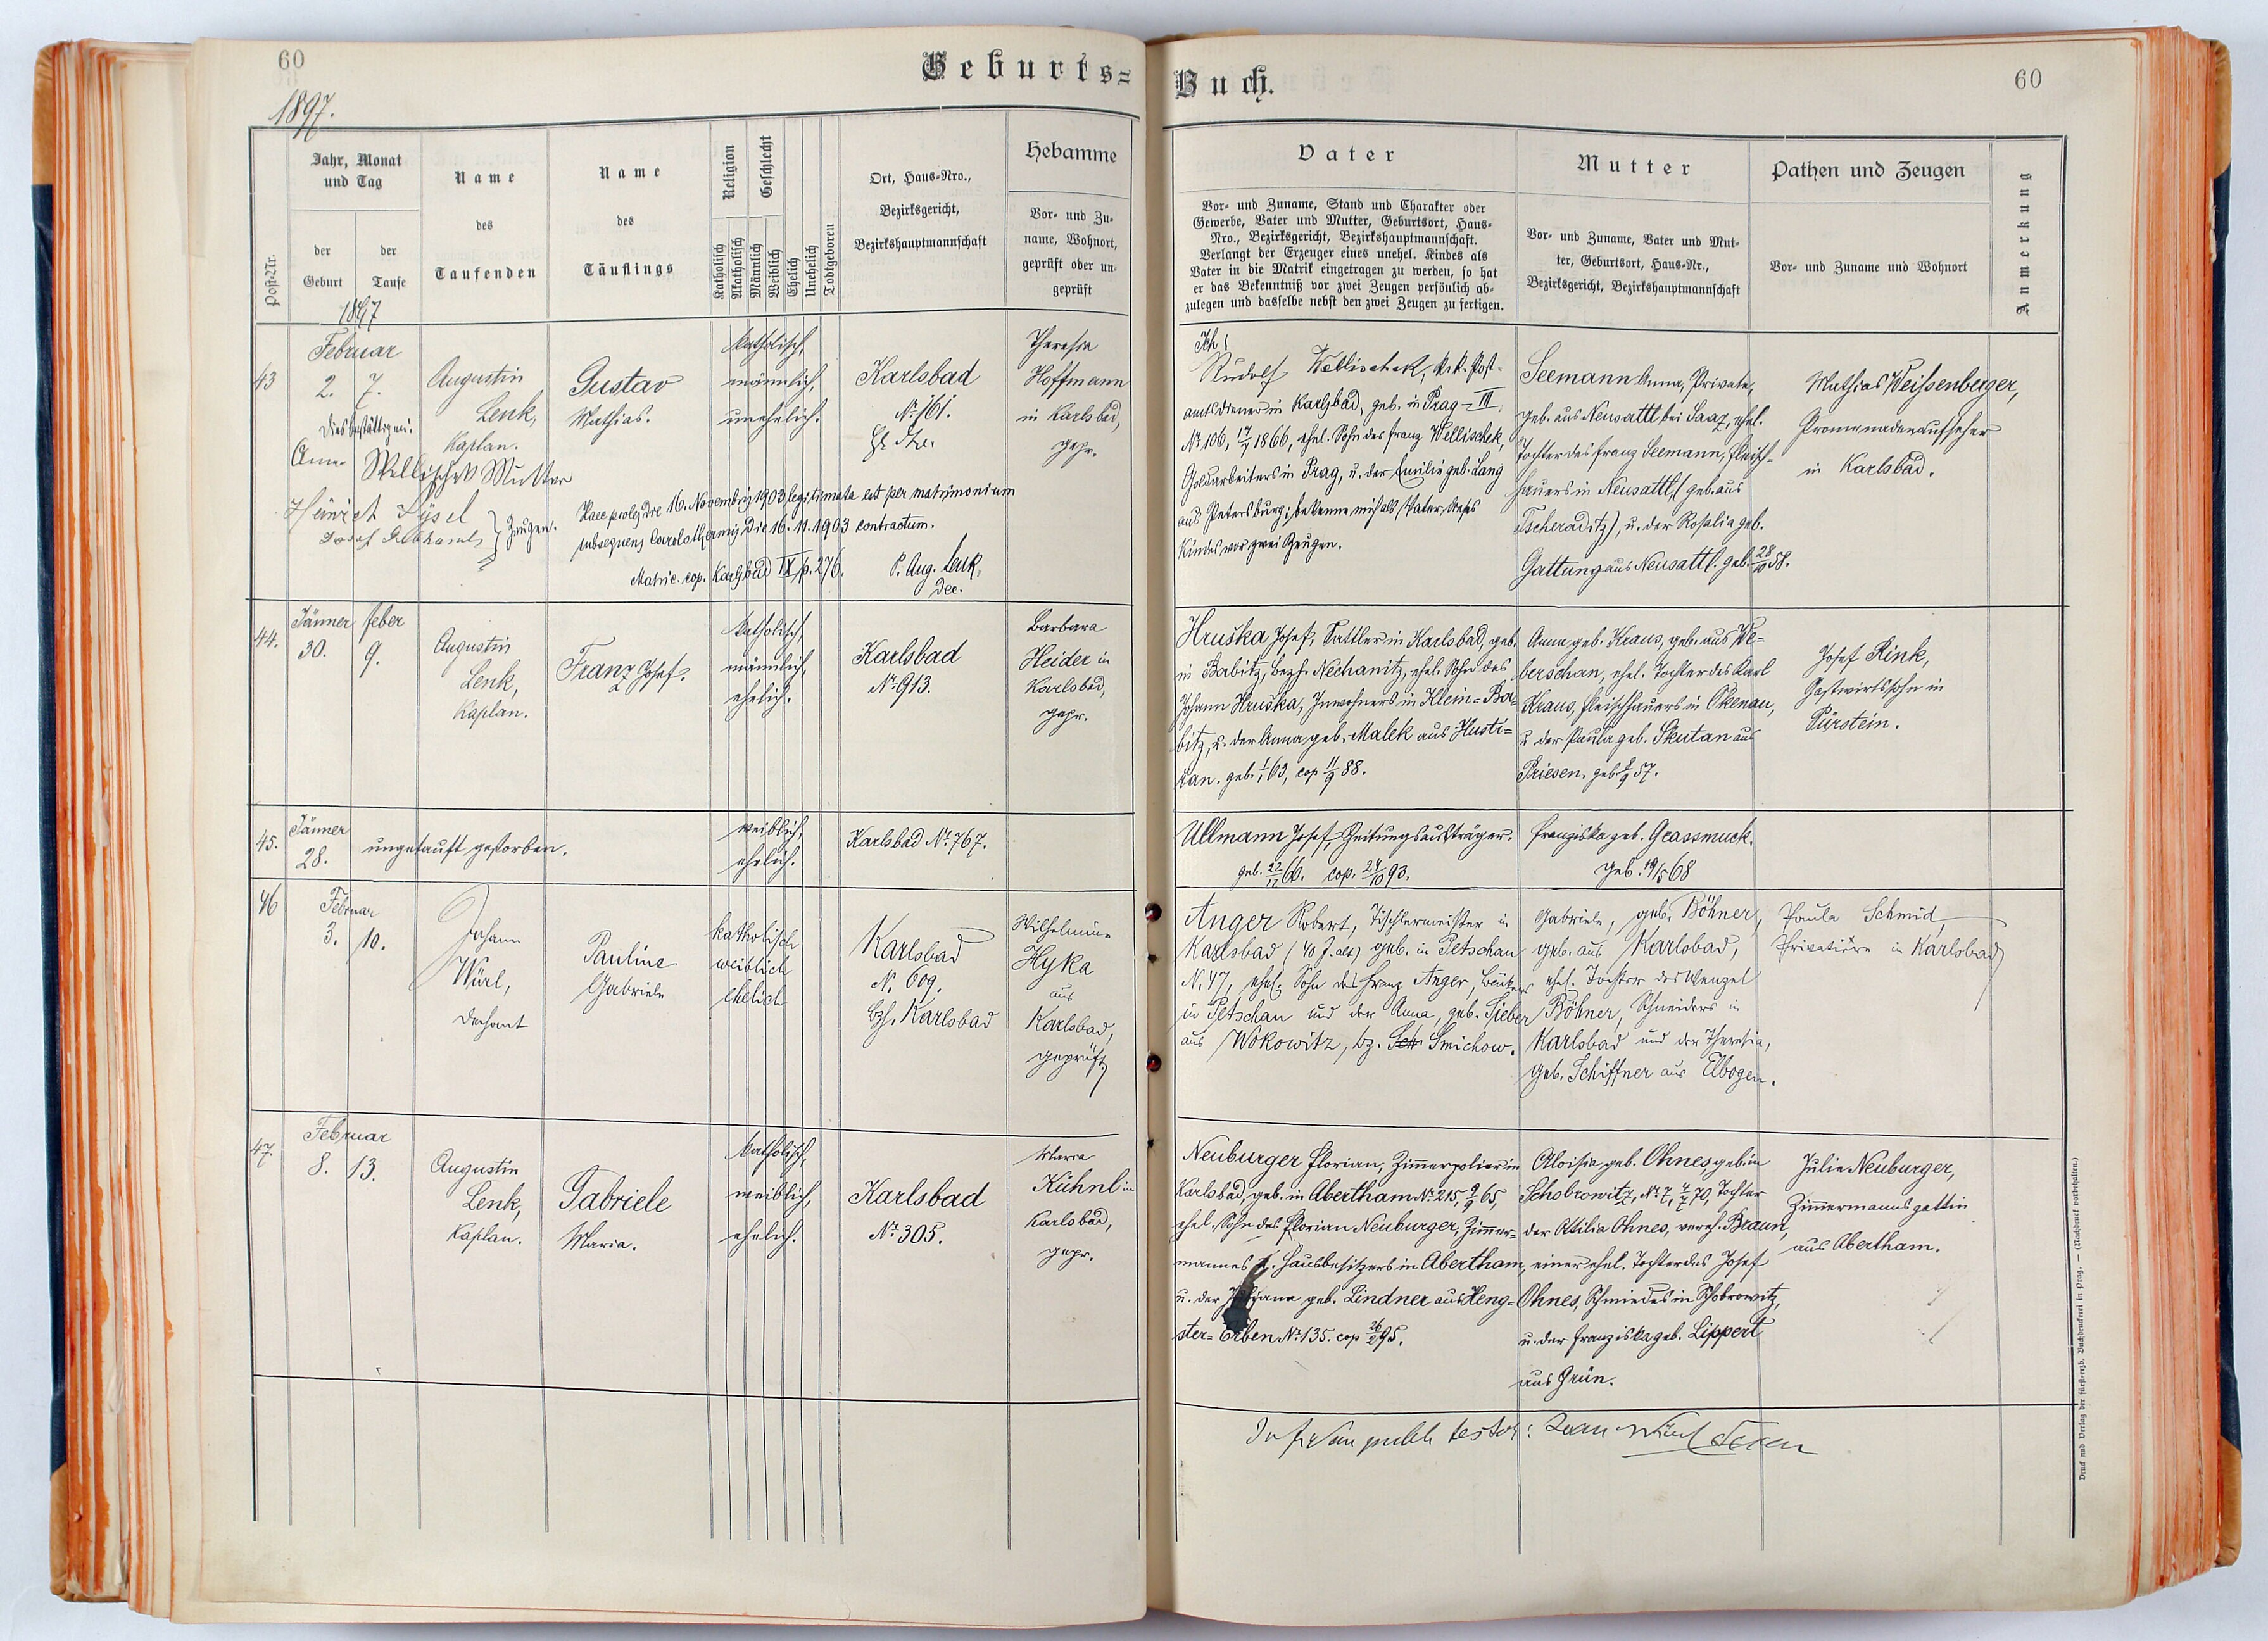 60
Geburts=
1897.
Post-Nr.
Jahr, Monat
und Tag
der
Geburt
der
Taufe
Name
des
Taufenden
Name
des
Täuflings
Religion
Geschlecht
Katholisch
Akatholisch
Männlich
Weiblich
Ehelich
Unehelich
Todtgeboren
Ort, Haus-Nro.,
Bezirksgericht,
Bezirkshauptmannschaft
Hebamme
Vor- und Zu-
name, Wohnort,
geprüft oder un-
geprüft
1897
43
Februar
2. 7.
Augustin
Lenk,
Kaplan.
Gustav
Mathias.
katholisch,
männlich,
unehelich.
Karlsbad
No 161.
Theresia
Hoffmann
in Karlsbad,
gepr.
Dies bestättigen:
Mutter
Zeugen.
Haec proles die 16. Novembris 1903 legitimata est per matrimonium
subsequens Carolsthermis die 16. 11. 1903 contractum.
Matric. cop. Karlsbad IX p. 276.
P. Aug. Lenk,
Dec.
44.
Jänner feber
30. 9.
Augustin
Lenk,
Kaplan.
Franz Josef.
katholisch,
männlich,
ehelich.
Karlsbad
No 913.
Barbara
Heider in
Karlsbad,
gepr.
45.
Jänner
28.
ungetauft gestorben.
weiblich,
ehelich.
Karlsbad No 767.
46
Februar
3. 10.
Johann
Würl,
Dechant
Pauline
Gabriele
katholisch
weiblich
ehelich
Karlsbad
N. 609.
Bzh. Karlsbad
Wilhelmine
Hyka
aus
Karlsbad,
geprüft
47.
Februar
8. 13.
Augustin
Lenk,
Kaplan.
Gabriele
Maria.
katholisch,
weiblich,
ehelich.
Karlsbad
No 305.
Maria
Kühnl in
Karlsbad,
gepr.
Buch.
60
Vater
Vor- und Zuname, Stand und Charakter oder
Gewerbe, Vater und Mutter, Geburtsort, Haus-
Nro., Bezirksgericht, Bezirkshauptmannschaft.
Verlangt der Erzeuger eines unehel. Kindes als
Vater in die Matrik eingetragen zu werden, so hat
er das Bekenntniß vor zwei Zeugen persönlich ab-
zulegen und dasselbe nebst den zwei Zeugen zu fertigen.
Mutter
Vor- und Zuname, Vater und Mut-
ter, Geburtsort, Haus-Nr.,
Bezirksgericht, Bezirkshauptmannschaft
Pathen und Zeugen
Vor- und Zuname und Wohnort
Anmerkung
Ich
Rudolf Wellischek, k.k. Post-
amtsdiener in Karlsbad, geb. in Prag - III
No 106, 1866, ehel. Sohn des Franz Wellischek,
Goldarbeiters in Prag, u. der Emilie geb. Lang
aus Petersburg; bekenne mich als Vater dieses
Kindes vor zwei Zeugen.
Seemann Anna, Private,
geb. aus Neusattl bei Saaz, ehel.
Tochter des Franz Seemann, Fleisch-
hauers in Neusattl, (geb. aus
Tscheraditz), u. der Rosalia geb.
Gattung aus Neusattl. geb. 28/10 58.
Mathias Weissenberger,
Promenadenaufseher
in Karlsbad.
Hruška Josef, Sattler in Karlsbad, geb.
in Babitz, Bezh. Nechanitz, ehel. Sohn des
Johann Hruška, Inwohners in Klein-Ba-
bitz, u. der Anna geb. Malek aus Husti-
řan. geb. 1/1 63, cop 11/9 88.
Anna geb. Kraus, geb. aus We-
berschan, ehel. Tochter des Karl
Kraus, Fleischhauers in Okenau,
u. der Paula geb. Skutan aus
Priesen. geb. 57.
Josef Rink,
Gastwirtssohn in
Pürstein.
Ullmann Josef, Zeitungsausträger.
geb. 22/11 66. cop. 24/10 93.
Franziska geb. Grassmuck.
geb. 19/5 68
Anger Robert, Tischlermeister in
Karlsbad (40 J. alt) geb. in Petschau
N. 47, ehel. Sohn des Franz Anger, Bäckers
in Petschau und der Anna, geb. Sieber
aus Wokowitz, bz. Smichow.
Gabriele, geb. Böhner,
geb. aus Karlsbad,
ehel. Tochter des Wenzel
Böhner, Schneiders in
Karlsbad und der Theresia,
geb. Schiffner aus Elbogen.
Paula Schmid,
Privatière in Karlsbad
Neuburger Florian, Zimmerpolier in
Karlsbad, geb. in Abertham No 215, 9/9 65,
ehel. Sohn des Florian Neuburger, Zimmer-
mannes u. Hausbesitzers in Abertham,
u. der geb. Lindner aus Heng-
ster-Erben No 135. cop 26/2 95.
Aloisia geb. Ohnes, geb. in
Schobrowitz, No 7, 70, Tochter
der Ottilia Ohnes, vereh. Braun,
einer ehel. Tochter des Josef
Ohnes, Schmiedes in Schobrowitz,
u. der Franziska geb. Lippert
aus Grün.
Julie Neuburger,
Zimmermannsgattin
aus Abertham.
Druck und Verlag der fürst-erzb. Buchdruckerei in Prag. — (Nachdruck vorbehalten.)